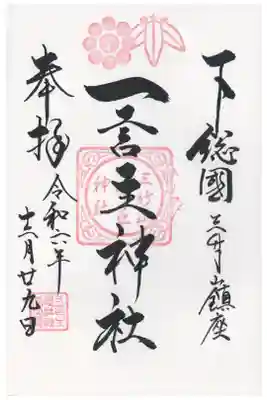 下総國 三竹山鎮座
一言主神社
奉拝
令和六年
十二月廿九日